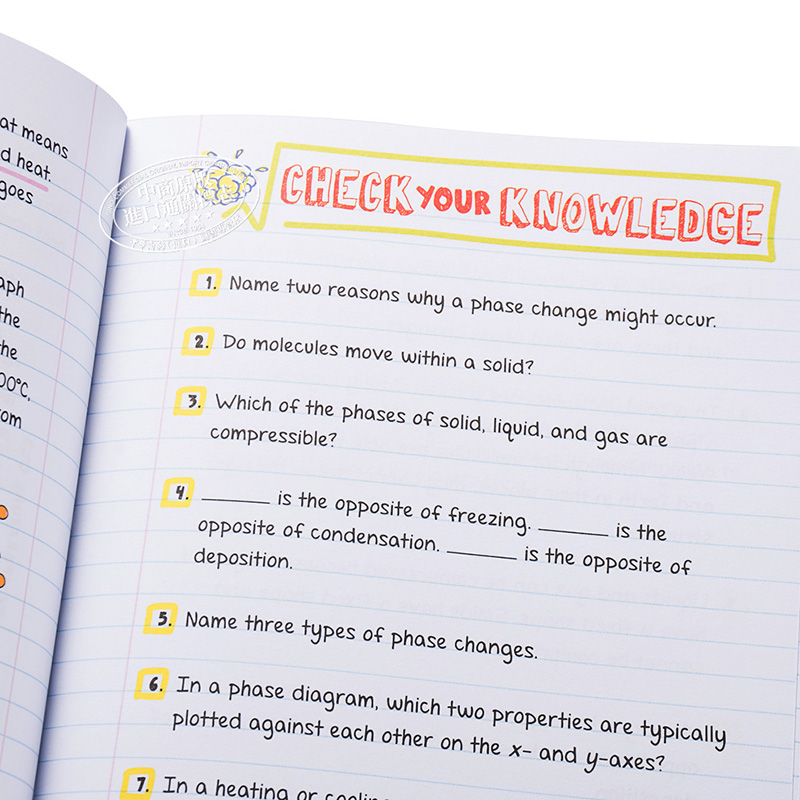 at means
d heat.
goes
aph
the
the
00°C.
om
CHECK YOUR KNOWLEDGE
1. Name two reasons why a phase change might occur.
2. Do molecules move within a solid?
3. Which of the phases of solid, liquid, and gas are
compressible?
4. ______ is the opposite of freezing. ______ is the
opposite of condensation. ______ is the opposite of
deposition.
5. Name three types of phase changes.
6. In a phase diagram, which two properties are typically
plotted against each other on the x- and y-axes?
7. In a heating or cooling